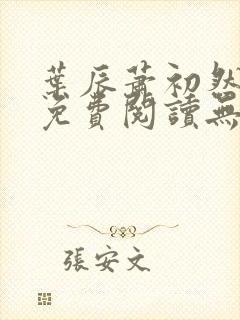 葉辰蕭初然
免費閱讀無
張安文